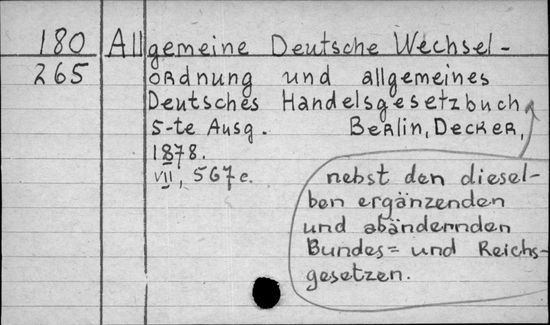 180 Allgemeine Deutsche Wechsel-
265 ordnung und allgemeines
Deutsches Handelsgesetzbuch
5-te Ausg. Berlin, Decker,
1878.
VII, 567 c.
nebst den diesel-
ben ergänzenden
und abändernden
Bundes= und Reichs-
gesetzen.